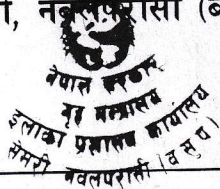 , नवलपरासी (ब
नेपाल सरकार
गृह मन्त्रालय
इलाका प्रशासन कार्यालय
सेमरी नवलपरासी (व सु प)